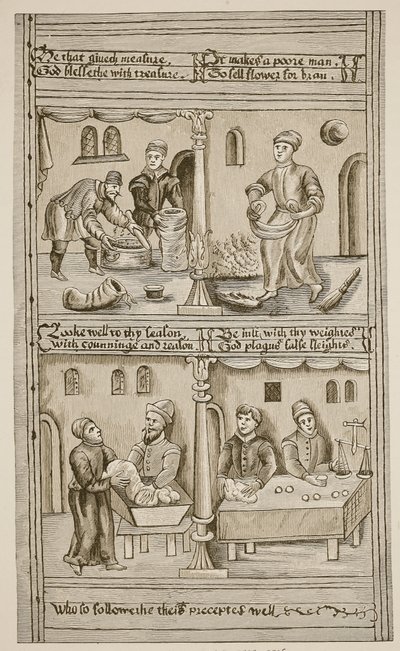 He that giueth measure,
God blessethe with treasure.
It makes a poore man.
To sell flower for bran.
Looke well to thy season,
with counninge and reason.
Be iust with thy weightes
God plagus false sleights.
Who so followethe theis preceptes well